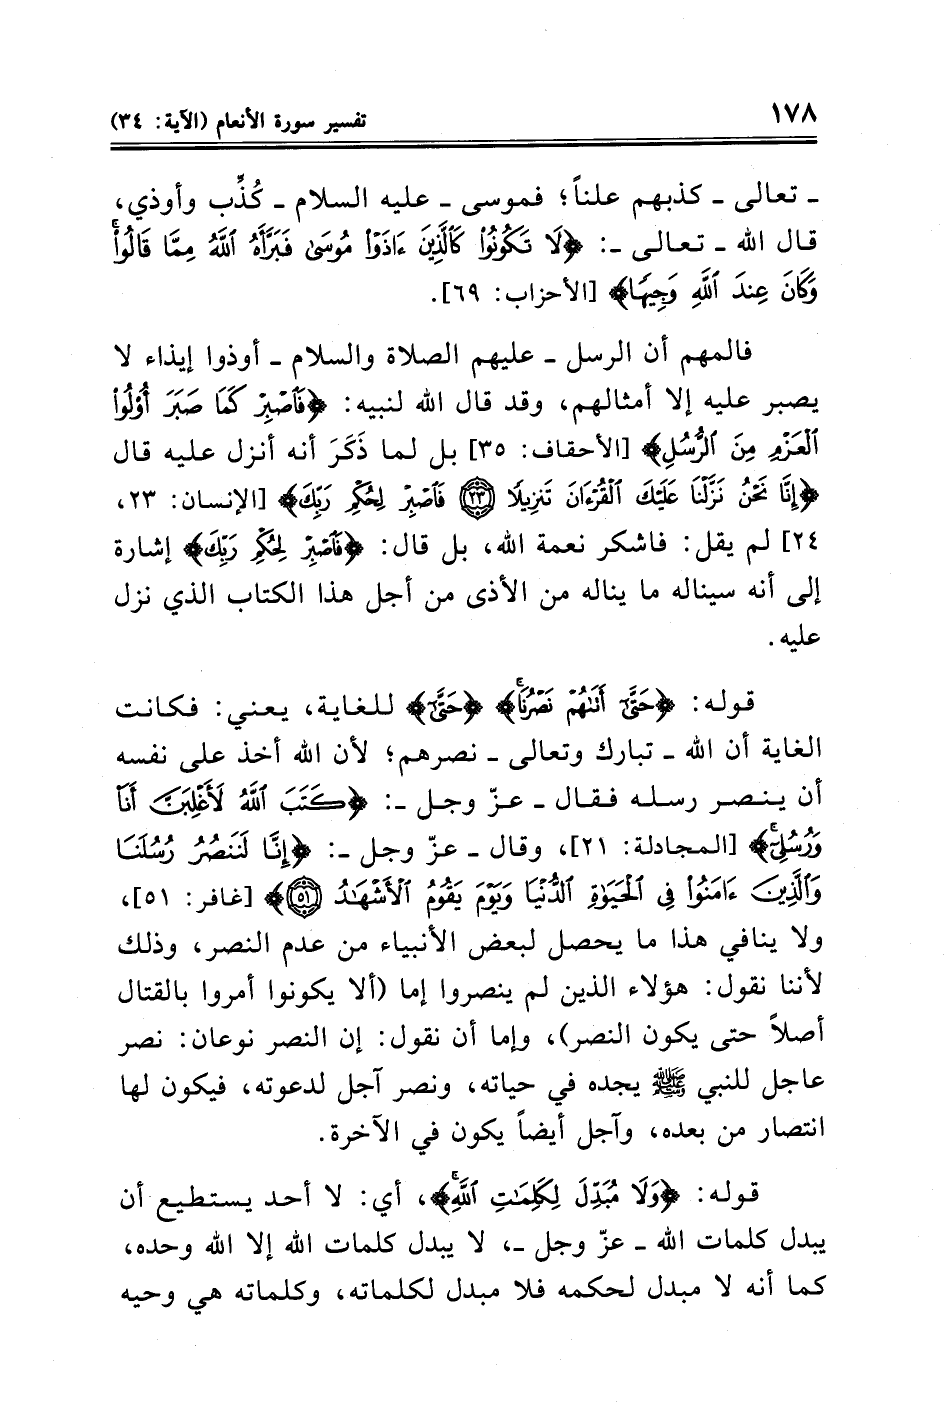 ١٧٨
تفسير سورة الأنعام (الآية: ٣٤)
ـ تعالى ـ كذبهم علناً؛ فموسى ـ عليه السلام ـ كُذِّب وأوذي،
قال الله ـ تعالى ـ: ﴿لَا تَكُونُوا۟ كَٱلَّذِينَ ءَاذَوْا۟ مُوسَىٰ فَبَرَّأَهُ ٱللَّهُ مِمَّا قَالُوا۟ۚ
وَكَانَ عِندَ ٱللَّهِ وَجِيهًا﴾ [الأحزاب: ٦٩].
فالمهم أن الرسل ـ عليهم الصلاة والسلام ـ أوذوا إيذاء لا
يصبر عليه إلا أمثالهم، وقد قال الله لنبيه: ﴿فَٱصْبِرْ كَمَا صَبَرَ أُو۟لُوا۟
ٱلْعَزْمِ مِنَ ٱلرُّسُلِ﴾ [الأحقاف: ٣٥] بل لما ذَكَرَ أنه أنزل عليه قال
﴿إِنَّا نَحْنُ نَزَّلْنَا عَلَيْكَ ٱلْقُرْءَانَ تَنزِيلًا ٢٣ فَٱصْبِرْ لِحُكْمِ رَبِّكَ﴾ [الإنسان: ٢٣،
٢٤] لم يقل: فاشكر نعمة الله، بل قال: ﴿فَٱصْبِرْ لِحُكْمِ رَبِّكَ﴾ إشارة
إلى أنه سيناله ما يناله من الأذى من أجل هذا الكتاب الذي نزل
عليه.
قوله: ﴿حَتَّىٰٓ أَتَىٰهُمْ نَصْرُنَاۚ﴾ ﴿حَتَّىٰٓ﴾ للغاية، يعني: فكانت
الغاية أن الله ـ تبارك وتعالى ـ نصرهم؛ لأن الله أخذ على نفسه
أن ينصر رسله فقال ـ عزّ وجل ـ: ﴿كَتَبَ ٱللَّهُ لَأَغْلِبَنَّ أَنَا۠
وَرُسُلِىٓۚ﴾ [المجادلة: ٢١]، وقال ـ عزّ وجل ـ: ﴿إِنَّا لَنَنصُرُ رُسُلَنَا
وَٱلَّذِينَ ءَامَنُوا۟ فِى ٱلْحَيَوٰةِ ٱلدُّنْيَا وَيَوْمَ يَقُومُ ٱلْأَشْهَـٰدُ ٥١﴾ [غافر: ٥١]،
ولا ينافي هذا ما يحصل لبعض الأنبياء من عدم النصر، وذلك
لأننا نقول: هؤلاء الذين لم ينصروا إما (ألا يكونوا أمروا بالقتال
أصلاً حتى يكون النصر)، وإما أن نقول: إن النصر نوعان: نصر
عاجل للنبي ﷺ يجده في حياته، ونصر آجل لدعوته، فيكون لها
انتصار من بعده، وآجل أيضاً يكون في الآخرة.
قوله: ﴿وَلَا مُبَدِّلَ لِكَلِمَـٰتِ ٱللَّهِۚ﴾، أي: لا أحد يستطيع أن
يبدل كلمات الله ـ عزّ وجل ـ، لا يبدل كلمات الله إلا الله وحده،
كما أنه لا مبدل لحكمه فلا مبدل لكلماته، وكلماته هي وحيه